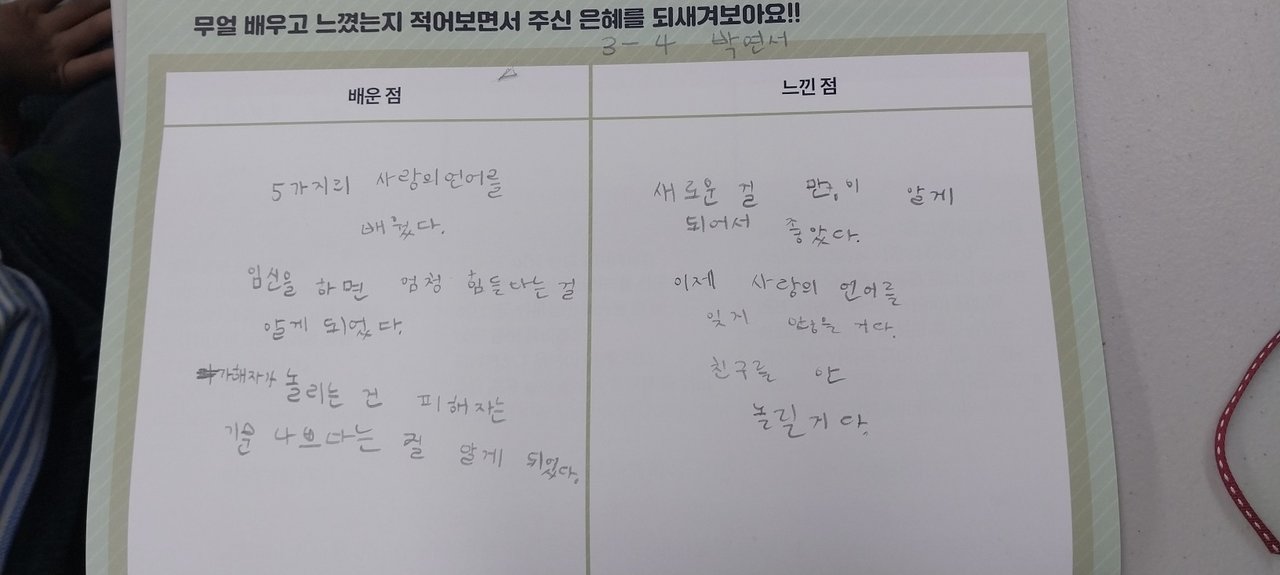 무얼 배우고 느꼈는지 적어보면서 주신 은혜를 되새겨보아요!!
3-4 박연서
배운 점
5가지리 사랑의언어를
배웠다.
임신을 하면 엄청 힘들다는 걸
알게 되었다.
가해자가 놀리는 건 피해자는
기분 나쁘다는 걸 알게 되었다.
느낀 점
새로운 걸 많이 알게
되어서 좋았다.
이제 사랑의 언어를
잊지 않을 거다.
친구를 안
놀릴거다.